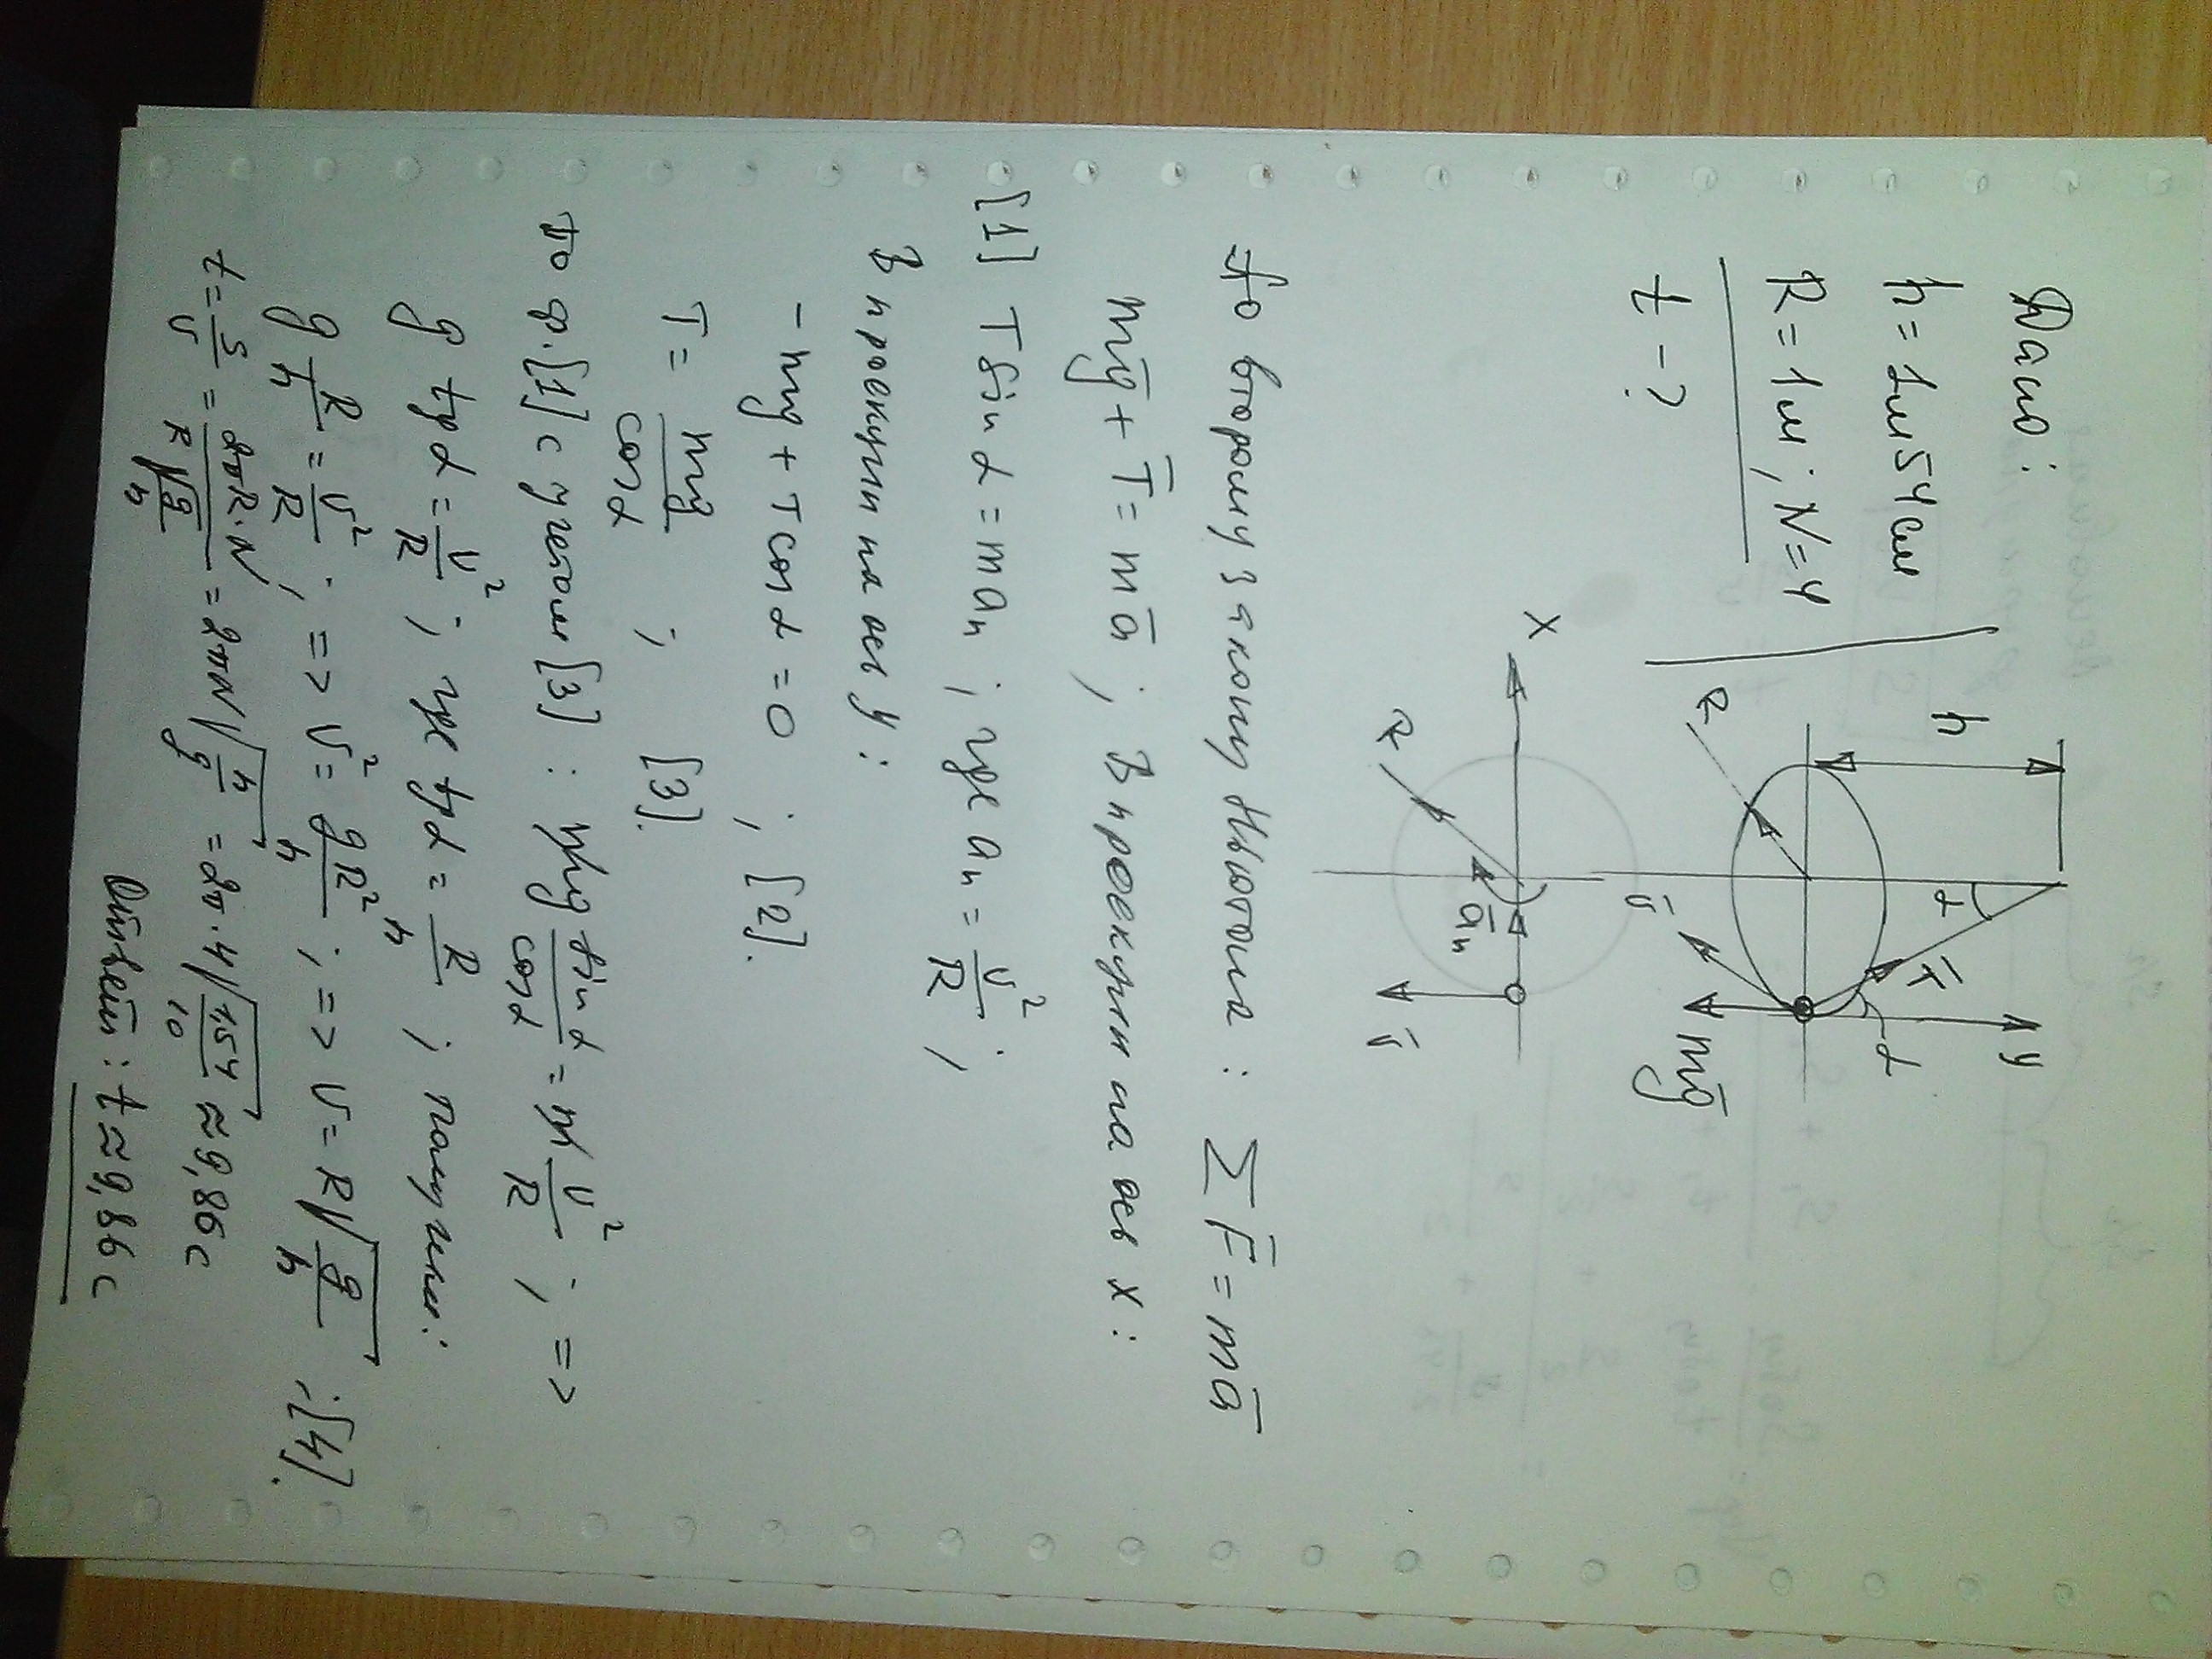 Дано:
h = 1м54см
R = 1м; N=4
t - ?
h
α
T̄
y
α
R
ῡ
mḡ
X
R
āₙ
ῡ
По второму закону Ньютона: ∑F̄ = mā
mḡ + T̄ = mā ; В проекции на ось x:
[1] T sin α = maₙ ; где aₙ = v²/R ;
В проекции на ось y:
- mg + T cos α = 0 ; [2].
T = mg/cos α ; [3].
то ф. [1] с учетом [3] : mg sin α/cos α = m v²/R ; =>
g tg α = v²/R ; где tg α = R/h ; получим:
g R/h = v²/R ; => v² = gR²/h ; => v = R√(g/h) ; [4].
t = S/v = 2πR·N/(R√(g/h)) = 2πN√(h/g) = 2π·4√(1,54/10) ≈ 9,86 с
Ответ: t ≈ 9,86 с